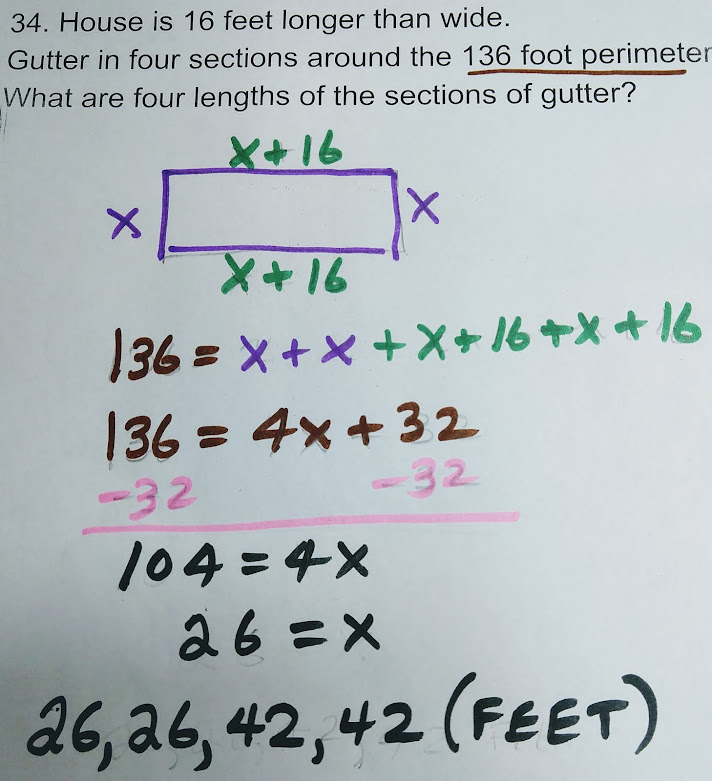 34. House is 16 feet longer than wide.
Gutter in four sections around the 136 foot perimeter
What are four lengths of the sections of gutter?
x+16
x x
x+16
136 = x + x + x + 16 + x + 16
136 = 4x + 32
-32 -32
104 = 4x
26 = x
26, 26, 42, 42 (FEET)